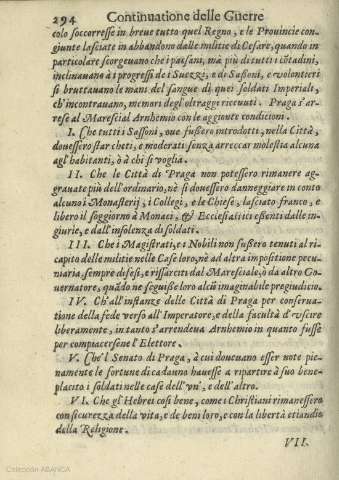 294 Continuatione delle Guerre
colo soccorresse in breve tutto quel Regno, e le Provincie con-
giunte lasciate in abbandono dalle militie di Cesare, quando in
particolare scorgeuano che i paesani, ma più di tutti i cittadini,
inclinauano à i progressi de i Suezzi, e di Sassoni, e volontieri
si bruttauano le mani del sangue di quei soldati Imperiali,
ch'incontrauano, memori degl'oltraggi riceuuti. Praga s'ar-
rese al Marescial Arnhemio con le aggionte conditioni.
I. Che tutti i Sassoni, oue fussero introdotti, nella Città,
douessero star cheti, e moderati senza arreccar molestia alcuna
agl'habitanti, ò à chi si voglia.
II. Che le Città di Praga non potessero rimanere ag-
grauate più dell'ordinario, nè si douesse danneggiare in conto
alcuno i Monasterij, i Collegi, e le Chiese, lasciato franco, e
libero il soggiorno à Monaci, & Ecclesiastici essenti dalle in-
giurie, e dall'insolenza di soldati.
III. Che i Magistrati, e i Nobili non fussero tenuti al ri-
capito delle militie nelle Case loro, nè ad altra impositione pecu-
niaria, sempre difesi, e rissarciti dal Maresciale, ò da altro Go-
uernatore, quādo ne seguisse loro alcū imaginabile pregiudicio.
IV. Ch'all'instanze delle Città di Praga per conserua-
tione della fede verso all'Imperatore, e della facultà d'vscire
liberamente, in tanto s'arrendeua Arnhemio in quanto fusse
per compiacersene l'Elettore.
V. Che'l Senato di Praga, à cui doueuano esser note pie-
namente le fortune di cadauno hauesse à ripartire à suo bene-
placito i soldati nelle case dell'vn', e dell'altro.
VI. Che gl'Hebrei così bene, come i Christiani rimanessero
con sicurezza della vita, e de beni loro, e con la libertà etiandio
della Religione.
VII.
Colección ABANCA